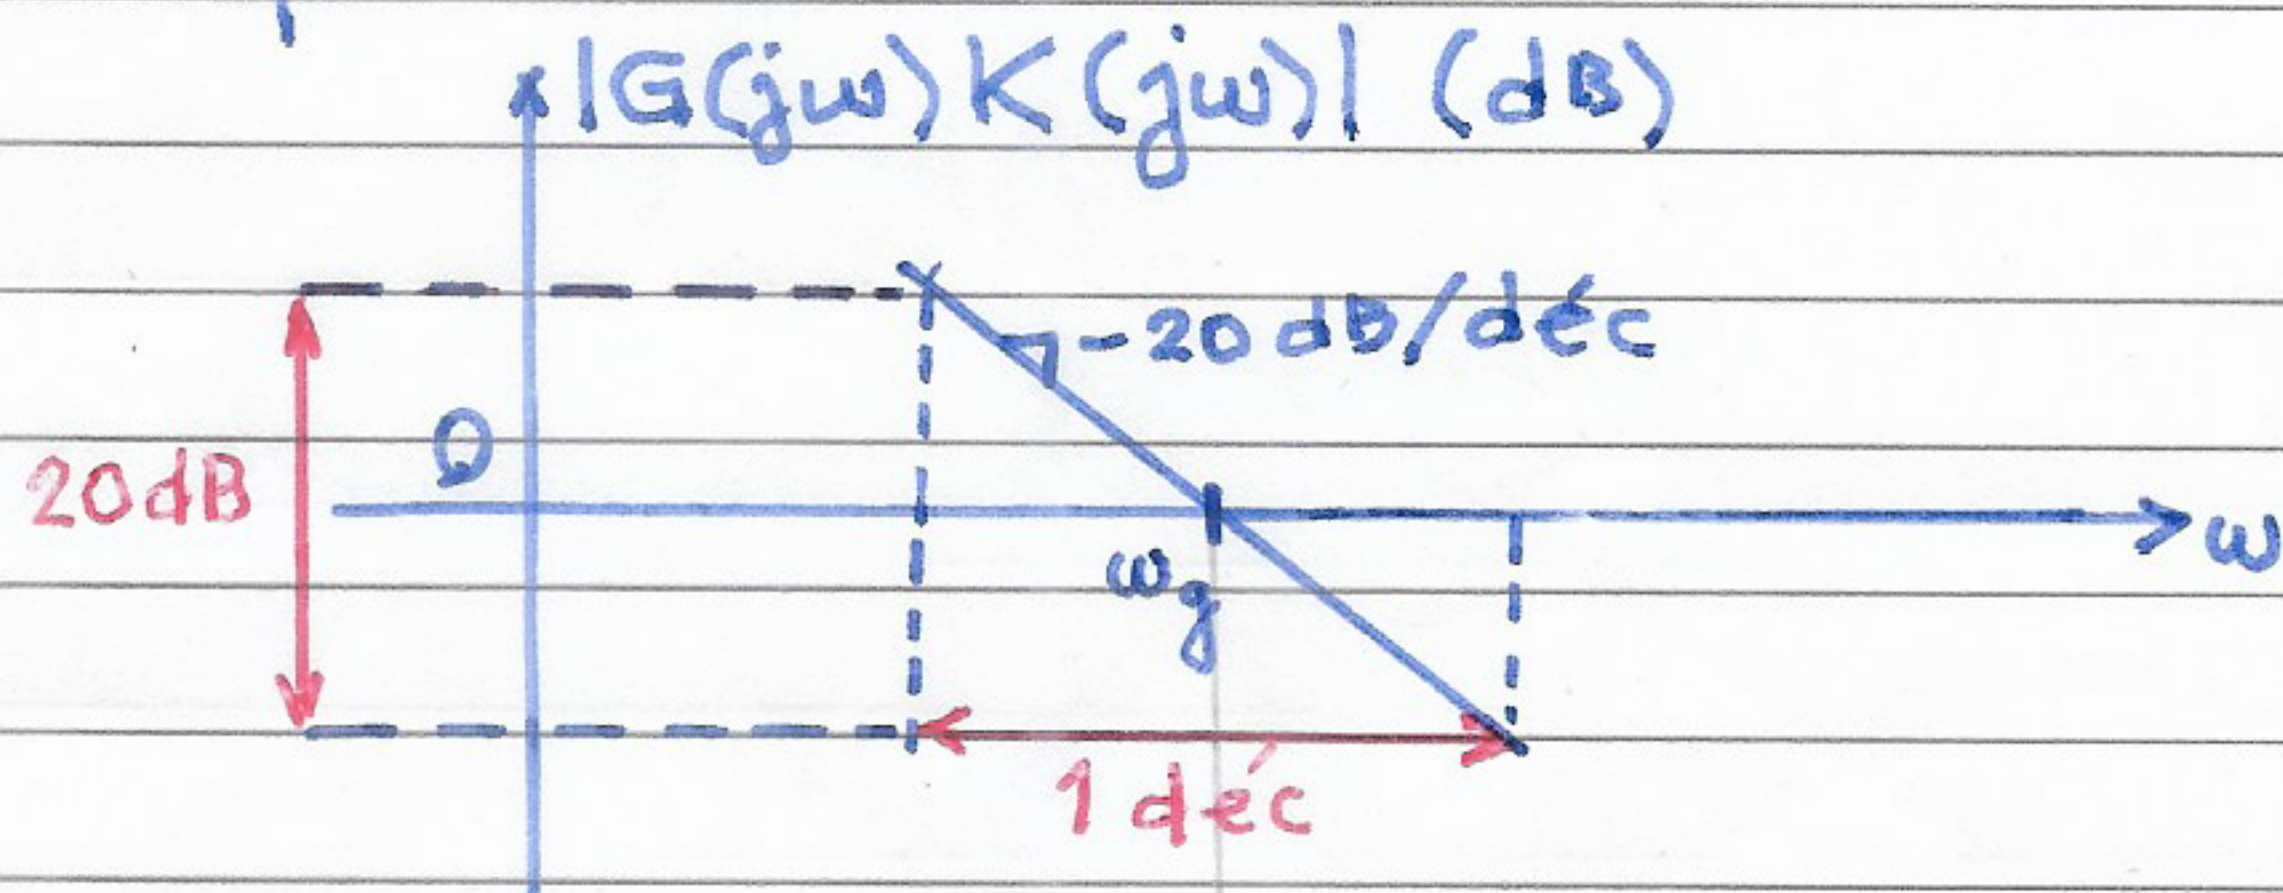 |G(jω)K(jω)| (dB)
-20 dB/déc
0
20dB
ω
ωg
1 déc